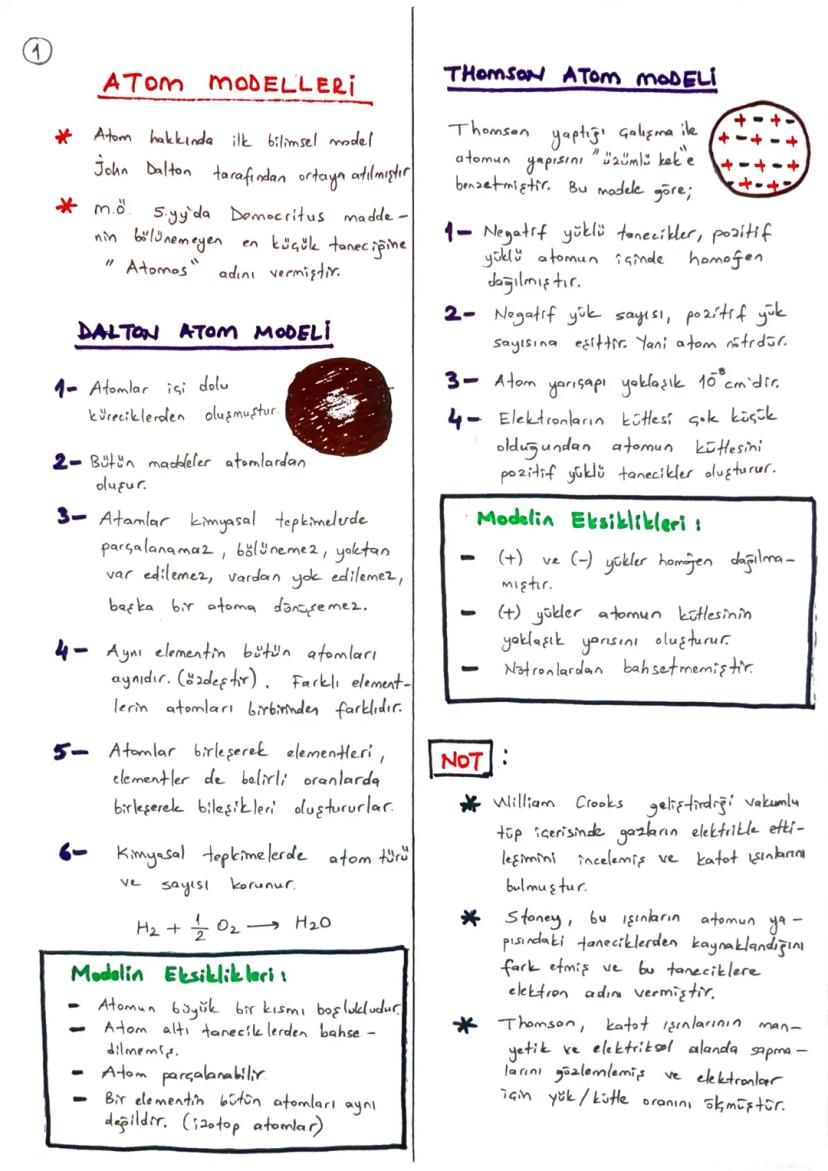 1
ATOM MODELLERİ
* Atom hakkında ilk bilimsel model
John Dalton tarafından ortaya atılmıştır
* M.Ö. 5.yy'da Democritus madde-
nin bölünemeyen en küçük taneciğine
"Atomos" adını vermiştir.
DALTON ATOM MODELİ
1- Atomlar içi dolu
küreciklerden oluşmuştur.
2- Bütün maddeler atomlardan
oluşur.
3- Atomlar kimyasal tepkimelerde
parçalanamaz, bölünemez, yoktan
var edilemez, vardan yok edilemez,
başka bir atoma dönüşemez.
4- Aynı elementin bütün atomları
aynıdır. (özdeştir). Farklı element-
lerin atomları birbirinden farklıdır.
5- Atomlar birleşerek elementleri,
elementler de belirli oranlarda
birleşerek bileşikleri oluştururlar.
6- Kimyasal tepkimelerde atom türü
ve sayısı korunur.
H₂ + 1/2 O₂ → H₂O
Modelin Eksiklikleri:
- Atomun büyük bir kısmı boşlukludur.
- Atom altı taneciklerden bahse-
dilmemiş.
- Atom parçalanabilir.
- Bir elementin bütün atomları aynı
değildir. (izotop atomlar)
THOMSON ATOM MODELİ
Thomson yaptığı çalışma ile
atomun yapısını "üzümlü kek"e
benzetmiştir. Bu modele göre;
+ - + -
+ - + - +
+ - + - +
- + - +
1- Negatif yüklü tanecikler, pozitif
yüklü atomun içinde homojen
dağılmıştır.
2- Negatif yük sayısı, pozitif yük
sayısına eşittir. Yani atom nötrdür.
3- Atom yarıçapı yaklaşık 10⁻⁸ cm'dir.
4- Elektronların kütlesi çok küçük
olduğundan atomun kütlesini
pozitif yüklü tanecikler oluşturur.
Modelin Eksiklikleri:
- (+) ve (-) yükler homojen dağılma-
mıştır.
- (+) yükler atomun kütlesinin
yaklaşık yarısını oluşturur.
- Nötronlardan bahsetmemiştir.
NOT :
* William Crooks geliştirdiği vakumlu
tüp içerisinde gazların elektrikle etki-
leşimini incelemiş ve katot ışınlarını
bulmuştur.
* Stoney, bu ışınların atomun ya-
pısındaki taneciklerden kaynaklandığını
fark etmiş ve bu taneciklere
elektron adını vermiştir.
* Thomson, katot ışınlarının man-
yetik ve elektriksel alanda sapma-
larını gözlemlemiş ve elektronlar
için yük/kütle oranını ölçmüştür.